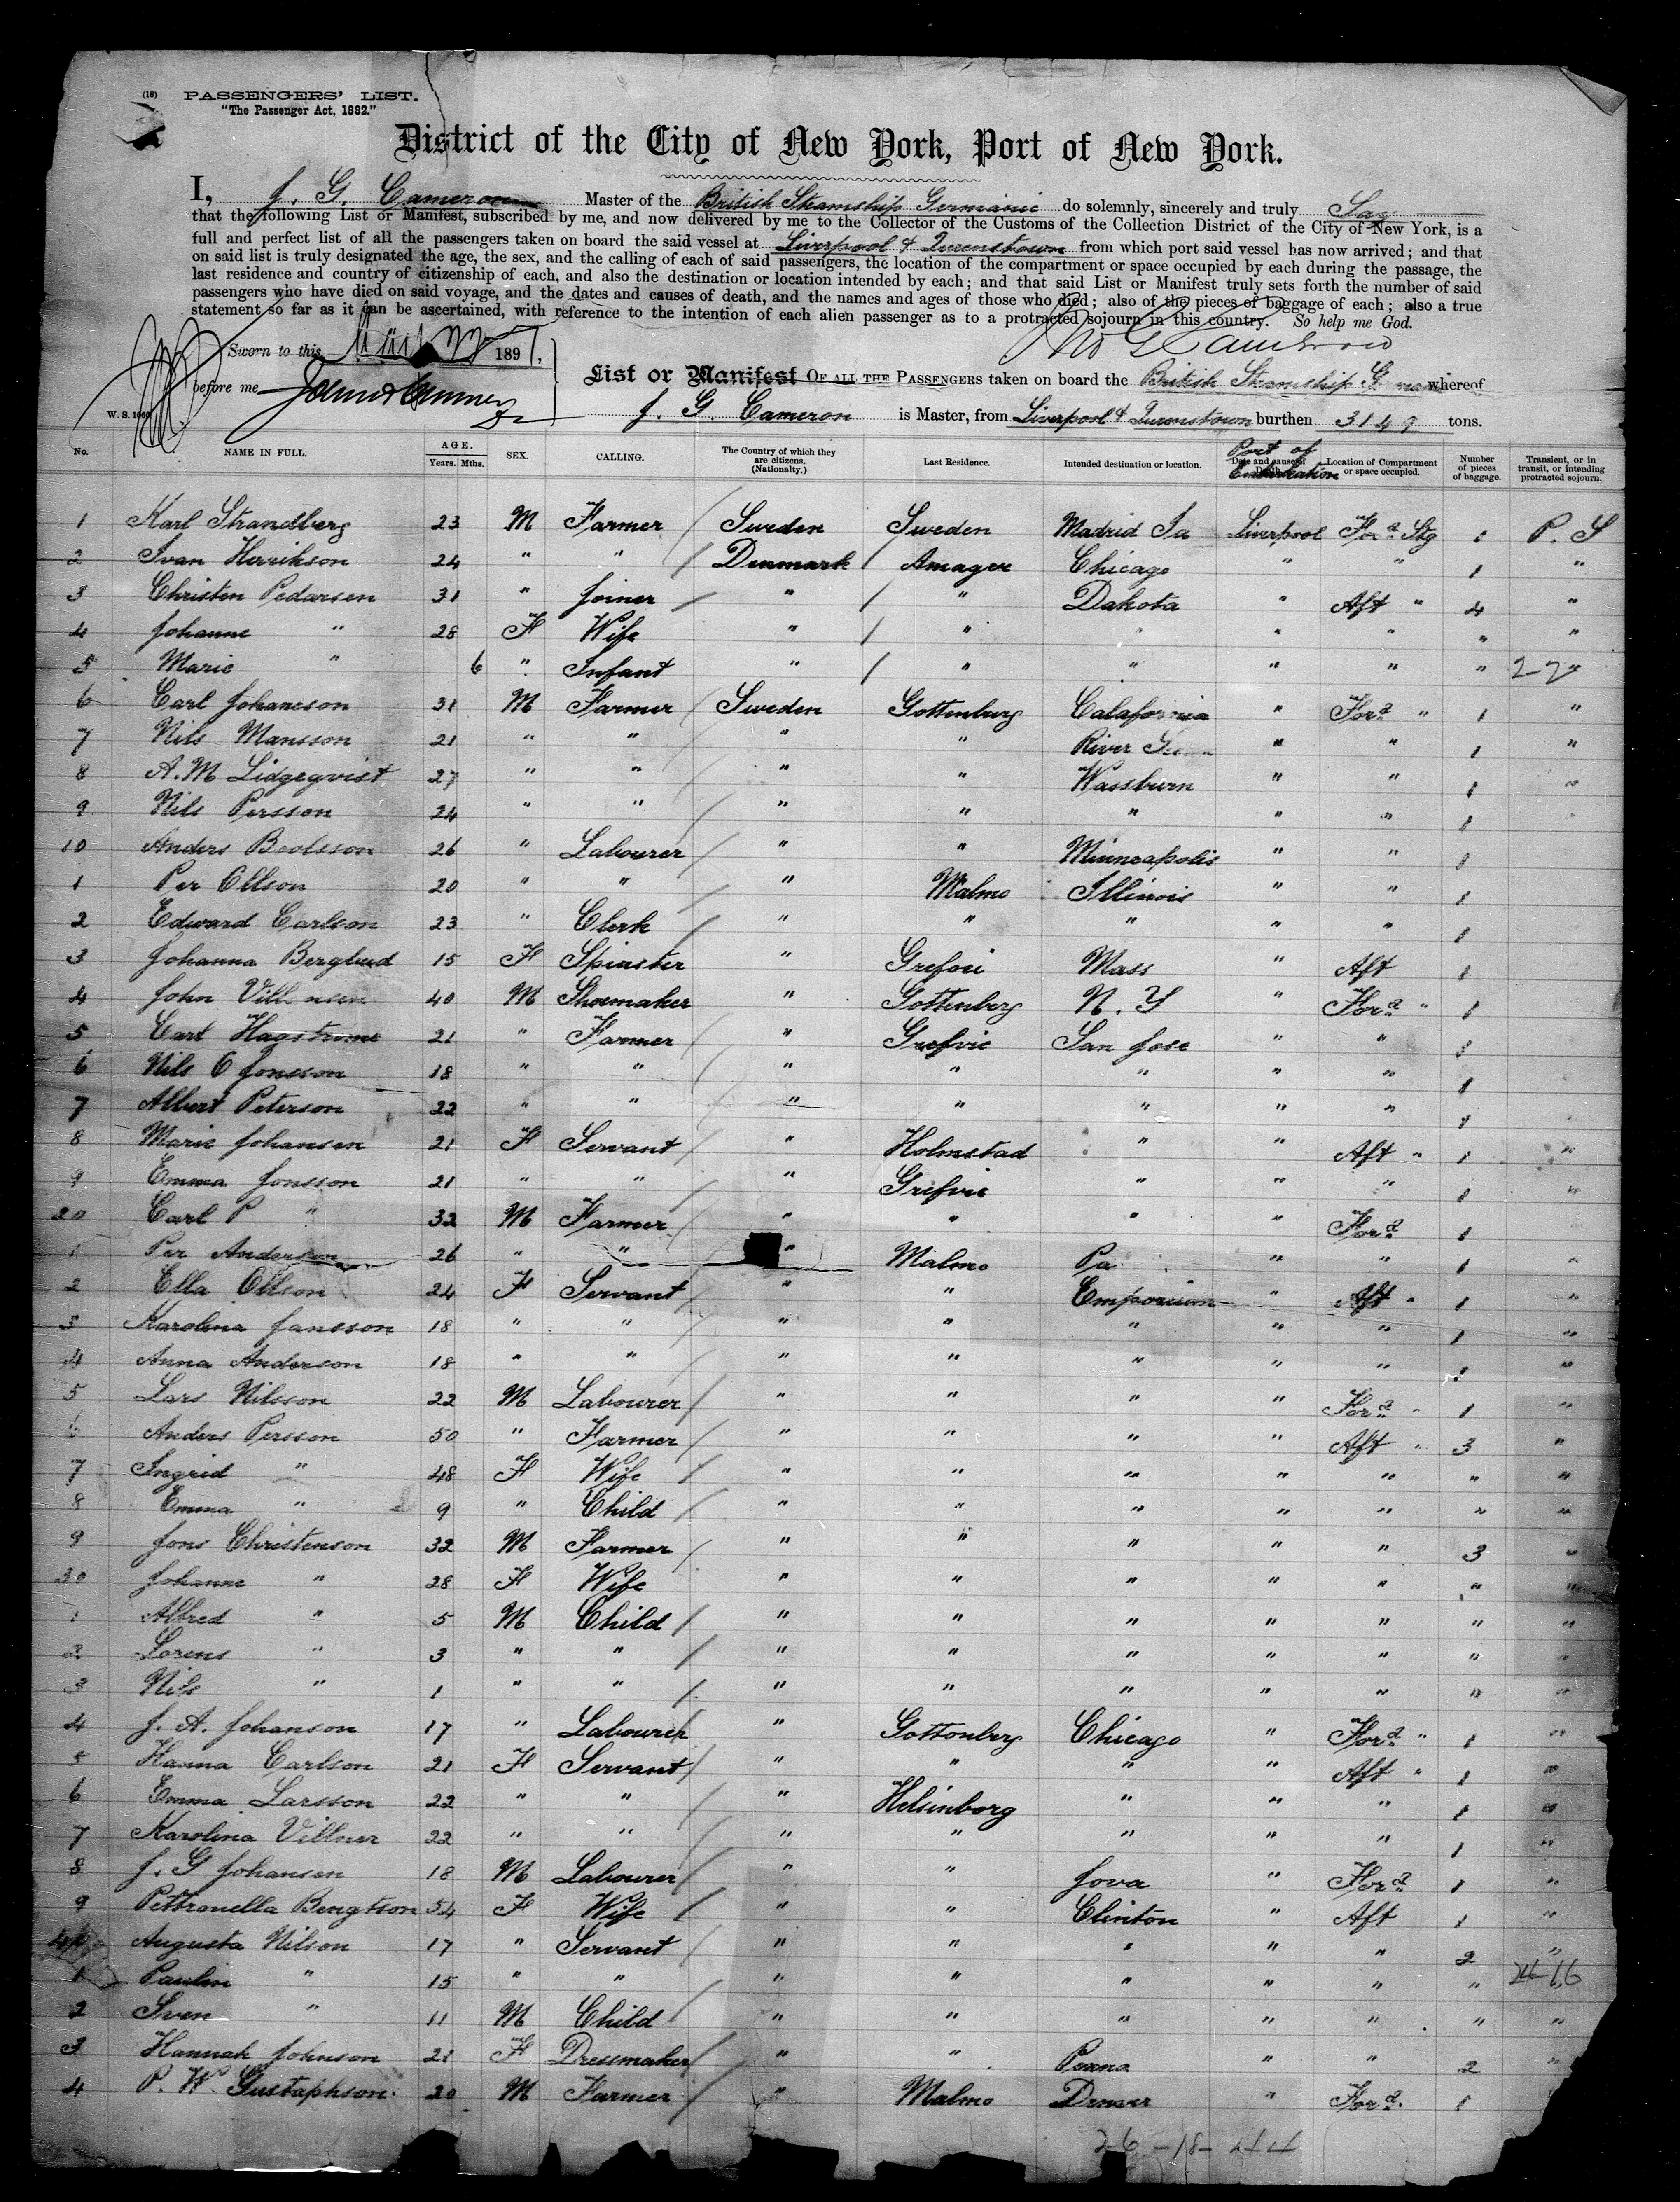 (18) PASSENGERS' LIST.
"The Passenger Act, 1882."
District of the City of New York, Port of New York.
I, J. G. Cameron Master of the British Steamship Germanic do solemnly, sincerely and truly Say
that the following List or Manifest, subscribed by me, and now delivered by me to the Collector of the Customs of the Collection District of the City of New York, is a
full and perfect list of all the passengers taken on board the said vessel at Liverpool & Queenstown from which port said vessel has now arrived; and that
on said list is truly designated the age, the sex, and the calling of each of said passengers, the location of the compartment or space occupied by each during the passage, the
last residence and country of citizenship of each, and also the destination or location intended by each; and that said List or Manifest truly sets forth the number of said
passengers who have died on said voyage, and the dates and causes of death, and the names and ages of those who died; also of the pieces of baggage of each; also a true
statement so far as it can be ascertained, with reference to the intention of each alien passenger as to a protracted sojourn in this country. So help me God.
Sworn to this 1891,
before me
W. S. 1660
List or Manifest OF ALL THE PASSENGERS taken on board the British Steamship Germanic whereof
J. G. Cameron is Master, from Liverpool & Queenstown burthen 3149 tons.
No. NAME IN FULL. AGE. Years. Mths. SEX. CALLING. The Country of which they are citizens. (Nationality.) Last Residence. Intended destination or location. Port of Embarkation Date and cause of Death. Location of Compartment or space occupied. Number of pieces of baggage. Transient, or in transit, or intending protracted sojourn.
1 Karl Strandberg 23 M Farmer / Sweden Sweden Madrid Ia Liverpool For'd Stg 1 P. S
2 Ivan Henrikson 24 " " / Denmark / Amager Chicago " " 1 "
3 Christen Pedarsen 31 " Joiner / " / " Dakota " Aft " 4 "
4 Johanne " 28 F Wife " / " " " " " "
5 Marie " 6 " Infant " / " " " " " 22 "
6 Carl Johanson 31 M Farmer / Sweden Gottenburg Calafornia " For'd " 1 "
7 Nils Mansson 21 " " / " " River " " 1 "
8 A. M Lidgeqvist 27 " " / " " Wassburn " " 1 "
9 Nils Persson 24 " " / " " " " " 1
10 Anders 26 " Labourer / " " Minneapolis " " 1
1 Per Ollson 20 " " / " Malmo Illinois " " 1
2 Edward Carlson 23 " Clerk / " " " " " 1
3 Johanna Berglund 15 F Spinster " Mass " Aft 1
4 John 40 M Shoemaker " Gottenberg N. Y " For'd " 1
5 Carl Hagstrome 21 " Farmer / " Grefvie San Jose " " 1
6 Nils O Jonsson 18 " " / " " " " " 1
7 Albert Peterson 22 " " / " " " " " 1
8 Marie Johansen 21 F Servant / " Holmstad " " Aft " 1 "
9 Emma Jonsson 21 " " / " Grefvie " " " 1 "
20 Carl P " 32 M Farmer / " " " " For'd 1
1 Per Anderson 26 " " " Malmo Pa " " 1 "
2 Ella Ollson 24 F Servant / " " Emporium " Aft " 1 "
3 Karolina Jansson 18 " " / " " " " " 1 "
4 Anna Anderson 18 " " / " " " " " 1 "
5 Lars Nilsson 22 M Labourer / " " " " For'd " 1 "
6 Anders Persson 50 " Farmer / " " " " Aft " 3 "
7 Ingrid " 48 F Wife / " " " " " " "
8 Emma " 9 " Child / " " " " " " "
9 Jons Christenson 32 M Farmer / " " " " " 3 "
30 Johanne " 28 F Wife " " " " " " "
1 Alfred " 5 M Child / " " " " " " "
2 Lorens " 3 " " / " " " " " " "
3 Nils " 1 " " / " " " " " " "
4 J. A. Johanson 17 " Labourer / " Gottonberg Chicago " For'd " 1 "
5 Hanna Carlson 21 F Servant / " " " " Aft " 1 "
6 Emma Larsson 22 " " / " Helsinborg " " " 1 "
7 Karolina Villner 22 " " / " " " " " 1 "
8 J. G Johansen 18 M Labourer / " " Jova " For'd 1 "
9 Pettronella Bengtson 54 F Wife / " " Clinton " Aft 1 "
40 Augusta Nilson 17 " Servant / " " " " " 2 "
1 Paulin " 15 " " / " " " " " " 24 16
2 Sven " 11 M Child / " " " " " " "
3 Hannah Johnson 21 F Dressmaker / " " " " 2 "
4 P. W. Gustaphson 20 M Farmer / " Malmo Denver " For'd. 1
26 - 18 - 44